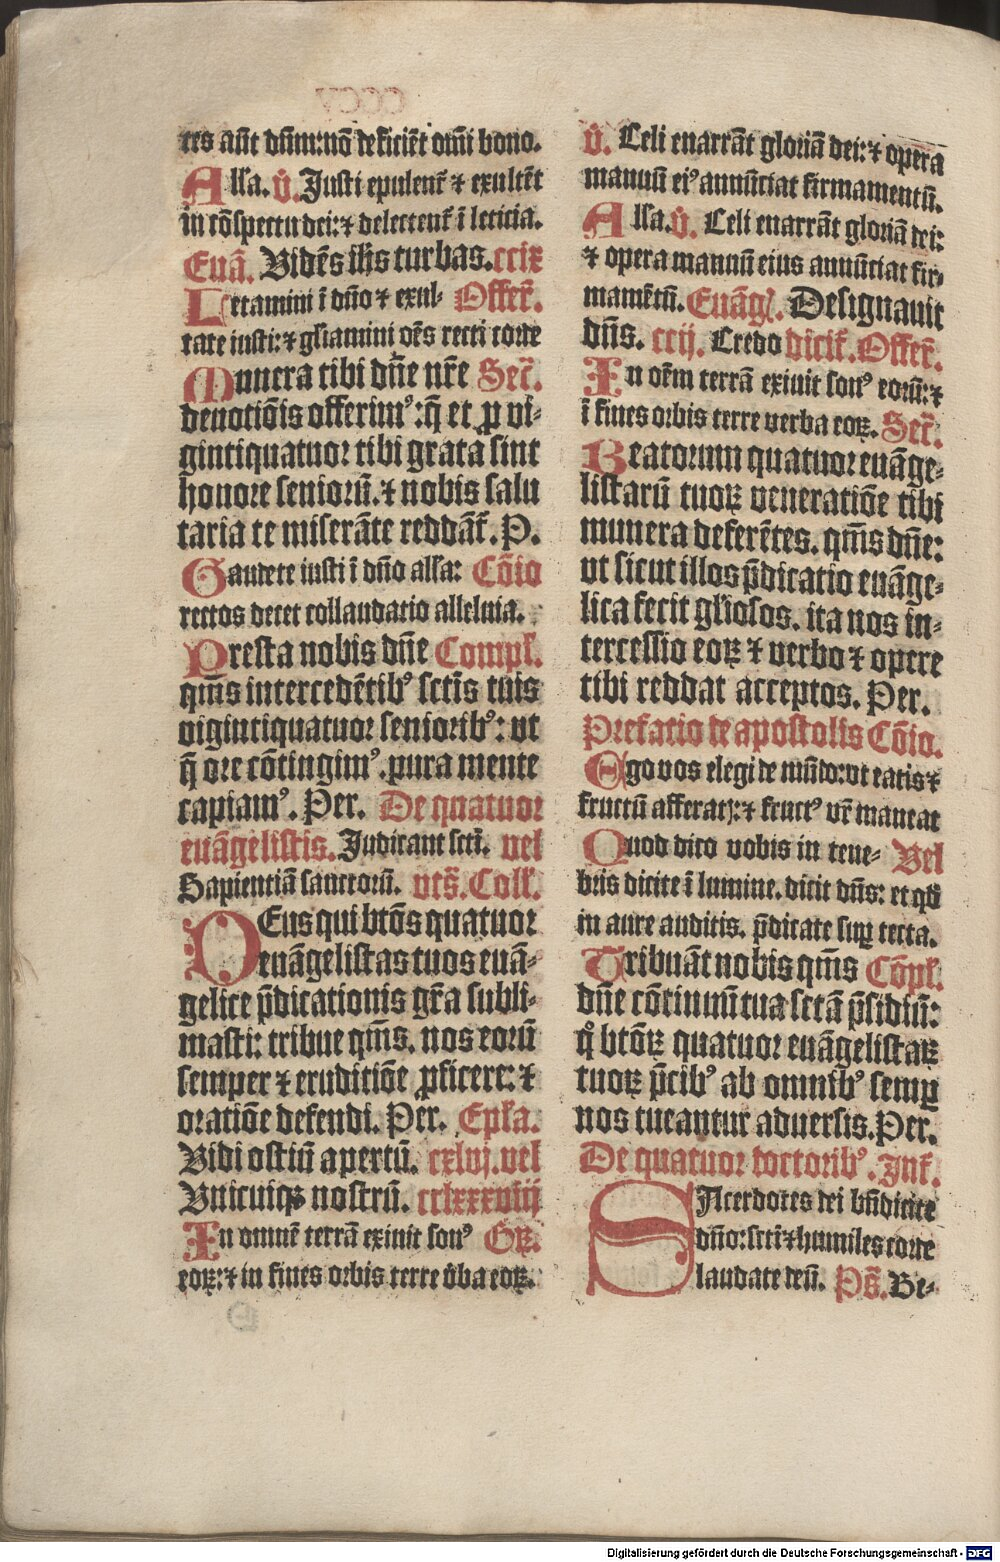 res aũt dñm: nõ deficiẽt om̃i bono.
Alla. v̊. Justi epulent᷑ ⁊ exultẽt
in cõspectu dei: ⁊ delectent᷑ ĩ leticia.
Euã. Vidẽs ih̃s turbas. ccix
Letamini ĩ dño ⁊ exul- Offer̃.
tate iusti: ⁊ gl̃iamini oẽs recti corde
Munera tibi dñe nr̃e Secr̃.
deuotiõis offerim⁹: q̃ et ꝓ vi-
gintiquatuor tibi grata sint
honore seniorũ. ⁊ nobis salu
taria te miserãte reddãt᷑. P.
Gaudete iusti ĩ dño alla: Cõio
rectos decet collaudatio alleluia.
Presta nobis dñe Compl̃.
qm̃s intercedẽtib⁹ sctĩs tuis
vigintiquatuor seniorib⁹: vt
q̃ ore cõtingim⁹. pura mente
capiam⁹. Per. De quatuor
euãgelistis. Judicant sctĩ. vel
Sapientiã sanctorũ. vts̃. Coll̃.
DEus qui btõs quatuor
euãgelistas tuos euã-
gelice p̃dicationis gr̃a subli-
masti: tribue qm̃s. nos eorũ
semper ⁊ eruditiõe ꝓficere: ⁊
oratiõe defendi. Per. Epl̃a.
Vidi ostiũ apertũ. cxlvj. vel
Vnicuiqꝫ nostrũ. cclxxxviij
In omnẽ terrã exiuit son⁹ Gꝛ̃.
eoꝝ: ⁊ in fines orbis terre v̊ba eoꝝ.
v̊. Celi enarrãt gloriã dei: ⁊ opera
manuũ ei⁹ annũciat firmamentũ.
Alla. v̊. Celi enarrãt gloriã dei:
⁊ opera manuũ eius annũciat fir-
mamẽtũ. Euãgl̃. Designauit
dñs. ccij. Credo dicit᷑. Offer̃.
In oẽm terrã exiuit son⁹ eorũ: ⁊
ĩ fines orbis terre verba eoꝝ. Secr̃.
Beatorum quatuor euãge-
listarũ tuoꝝ veneratiõe tibi
munera deferẽtes. qm̃s dñe:
vt sicut illos p̃dicatio euãge-
lica fecit gl̃iosos. ita nos in-
tercessio eoꝝ ⁊ verbo ⁊ opere
tibi reddat acceptos. Per.
Prefatio de apostolis Cõio.
Ego vos elegi de mũdo: vt eatis ⁊
fructũ afferatj: ⁊ fruct⁹ vr̃ maneat
Quod dico vobis in tene- Vel
bris dicite ĩ lumine. dicit dñs: et qd̃
in aure auditis. p̃dicate suꝑ tecta.
Tribuãt nobis qm̃s Cõpl̃.
dñe cõtinuũ tua sctã p̃sidiũ:
q̊ btõꝝ quatuor euãgelistaꝝ
tuoꝝ p̃cib⁹ ab omnib⁹ sempꝑ
nos tueantur aduersis. Per.
De quatuor doctorib⁹. Int᷑.
SAcerdotes dei bñdicite
dño: sctĩ ⁊ humiles corde
laudate deũ. Ps̃. Be-
Digitalisierung gefördert durch die Deutsche Forschungsgemeinschaft - DFG